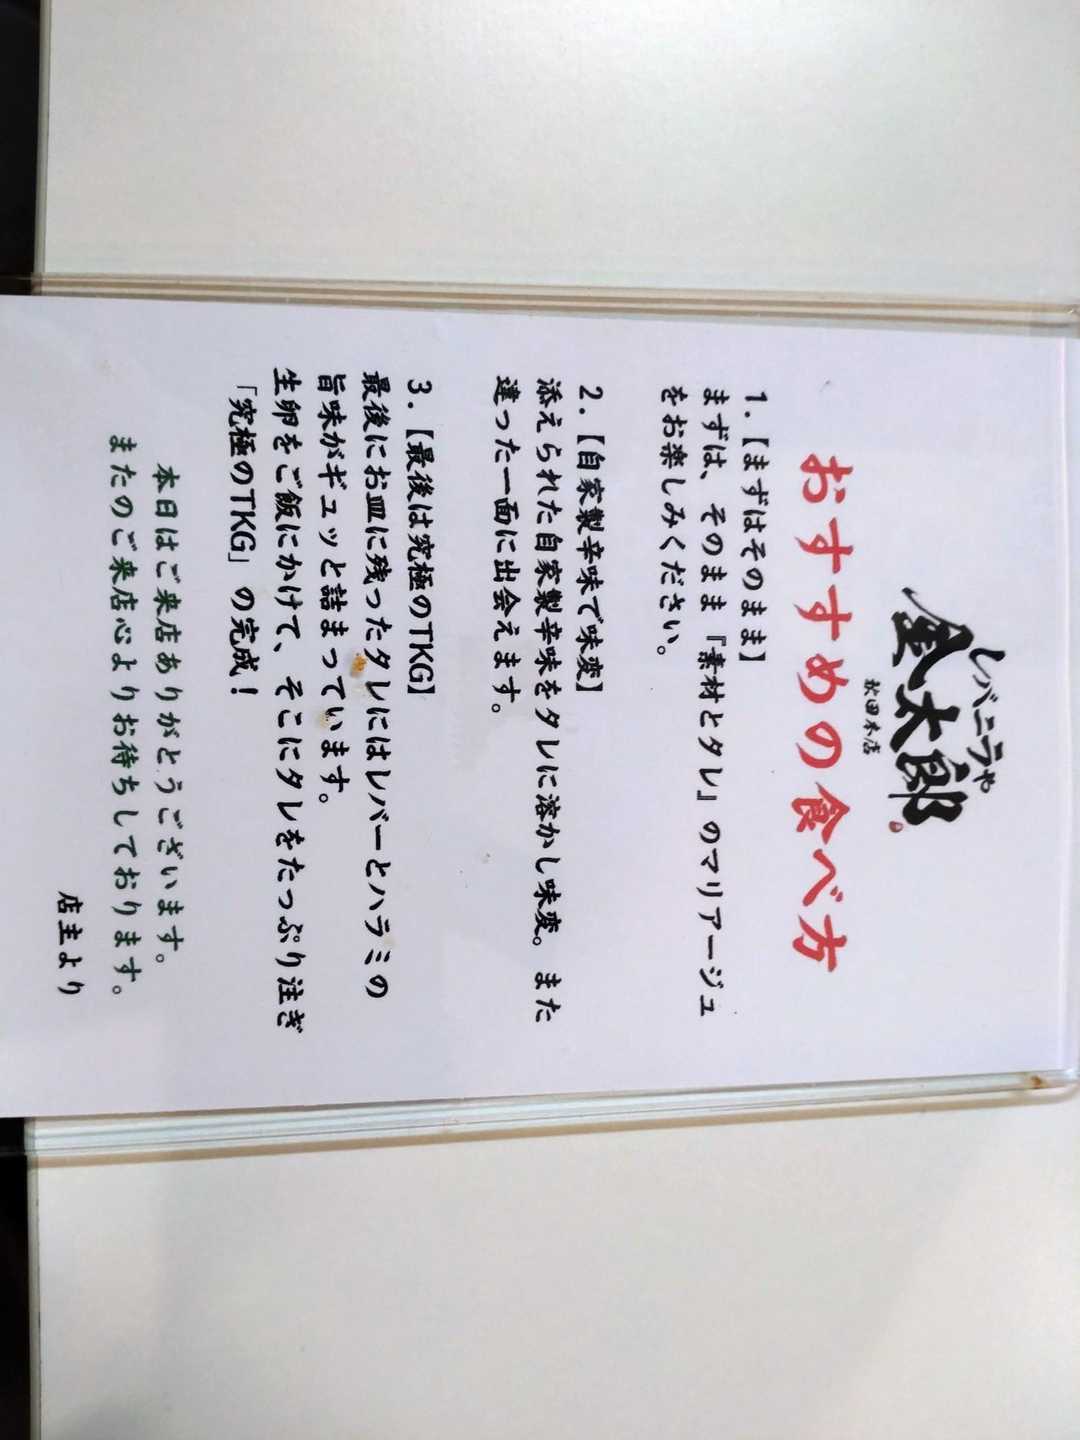 レバニラや
金太郎
秋田本店
おすすめの食べ方
1.【まずはそのまま】
まずは、そのまま『素材とタレ』のマリアージュ
をお楽しみください。
2.【自家製辛味で味変】
添えられた自家製辛味をタレに溶かし味変。また
違った一面に出会えます。
3.【最後は究極のTKG】
最後にお皿に残ったタレにはレバーとハラミの
旨味がギュッと詰まっています。
生卵をご飯にかけて、そこにタレをたっぷり注ぎ
「究極のTKG」の完成！
本日はご来店ありがとうございます。
またのご来店心よりお待ちしております。
店主より